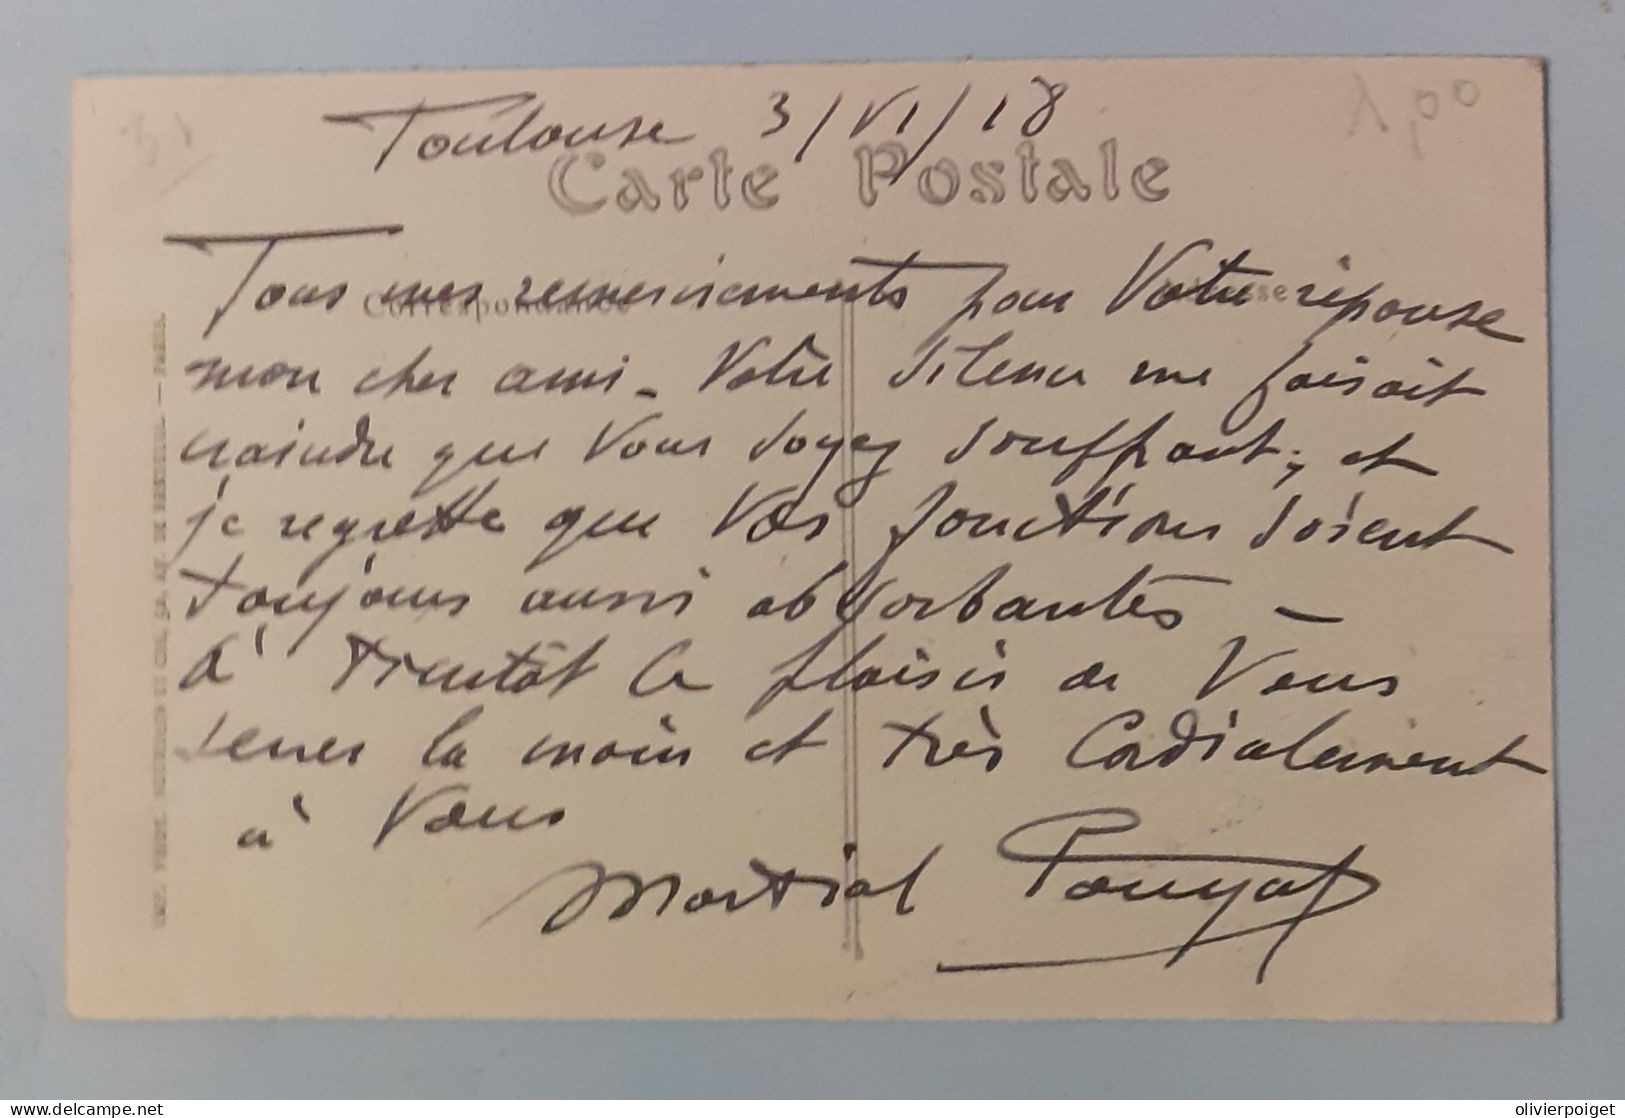 31
1,00
Toulouse 3/VI/18
Carte Postale
Correspondance
Tous mes remerciements pour Votre réponse
mon cher ami. Votre silence me faisait
craindre que Vous soyez souffrant, et
je regrette que Vos fonctions soient
toujours aussi absorbantes -
à bientôt le plaisir de Vous
serrer la main et très Cordialement
à Vous
Martial Pouyat
olivierpoiget